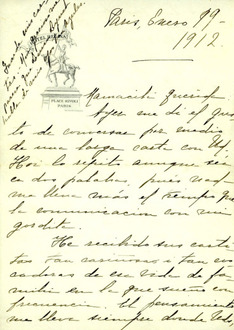 Paris, Enero 19-
1912.
PLACE RIVOLI
PARIS
Mamacita querida
Ayer me di el gus-
to de conversar por medio
de una larga carta con Ud.
Hoi lo repito aunque sea
con dos palabras, pues nada
me llena más el tiempo que
la comunicacion con mi
gordita.
He recibido sus carti-
tas tan cariñosas i tan evo-
cadoras de esa vida de fa-
milia en la que sueño con
frecuencia. El pensamiento
me lleva siempre donde Uds.